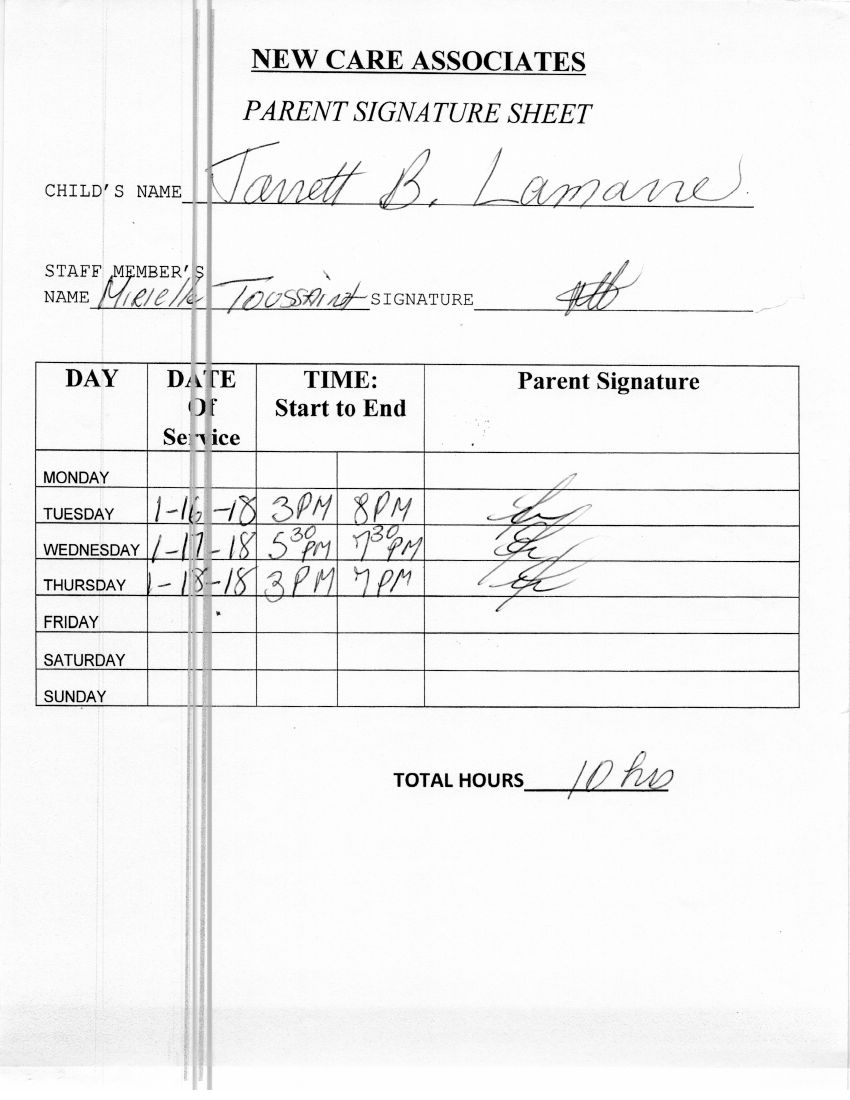 NEW CARE ASSOCIATES
PARENT SIGNATURE SHEET
CHILD'S NAME Jarrett B. Lamarre
STAFF MEMBER'S
NAME Mirielle Toussaint SIGNATURE
DAY DATE Of Service TIME: Start to End Parent Signature
MONDAY
TUESDAY 1-16-18 3PM 8PM
WEDNESDAY 1-17-18 5 30 PM 7 30 PM
THURSDAY 1-18-18 3PM 7PM
FRIDAY
SATURDAY
SUNDAY
TOTAL HOURS 10 hrs